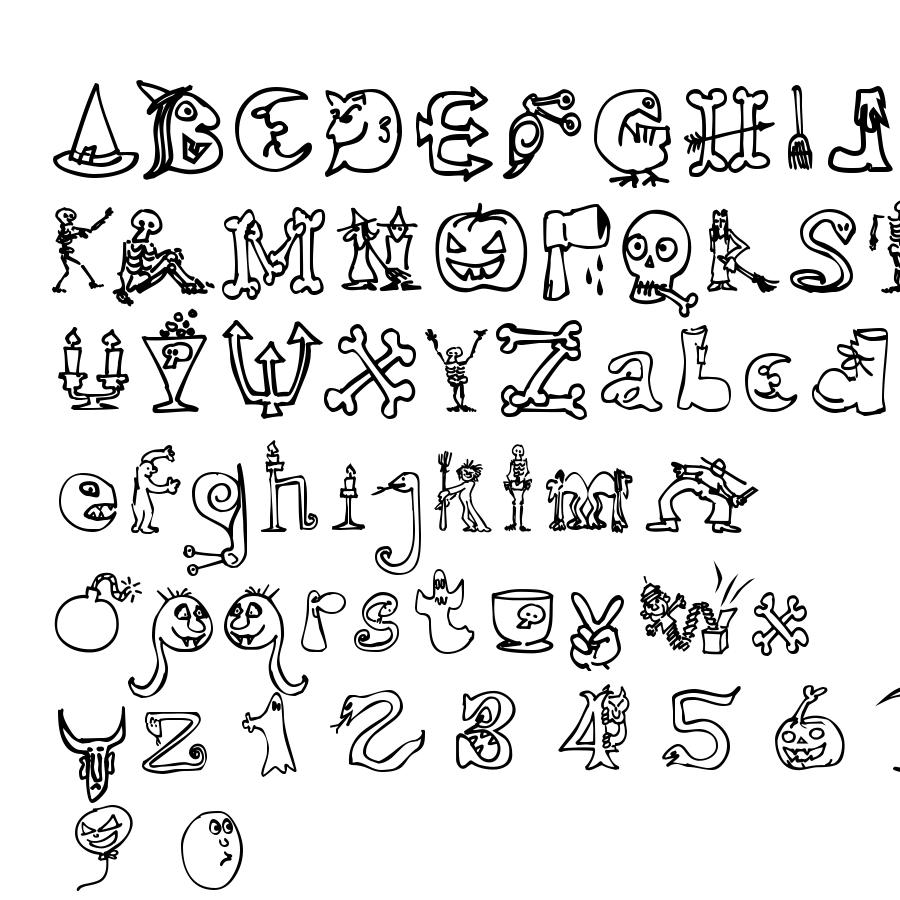 ABCDEFGHIJ
KLMNOPQRST
UVWXYZabcd
efghijklmn
opqrstuvwx
yz123456
90